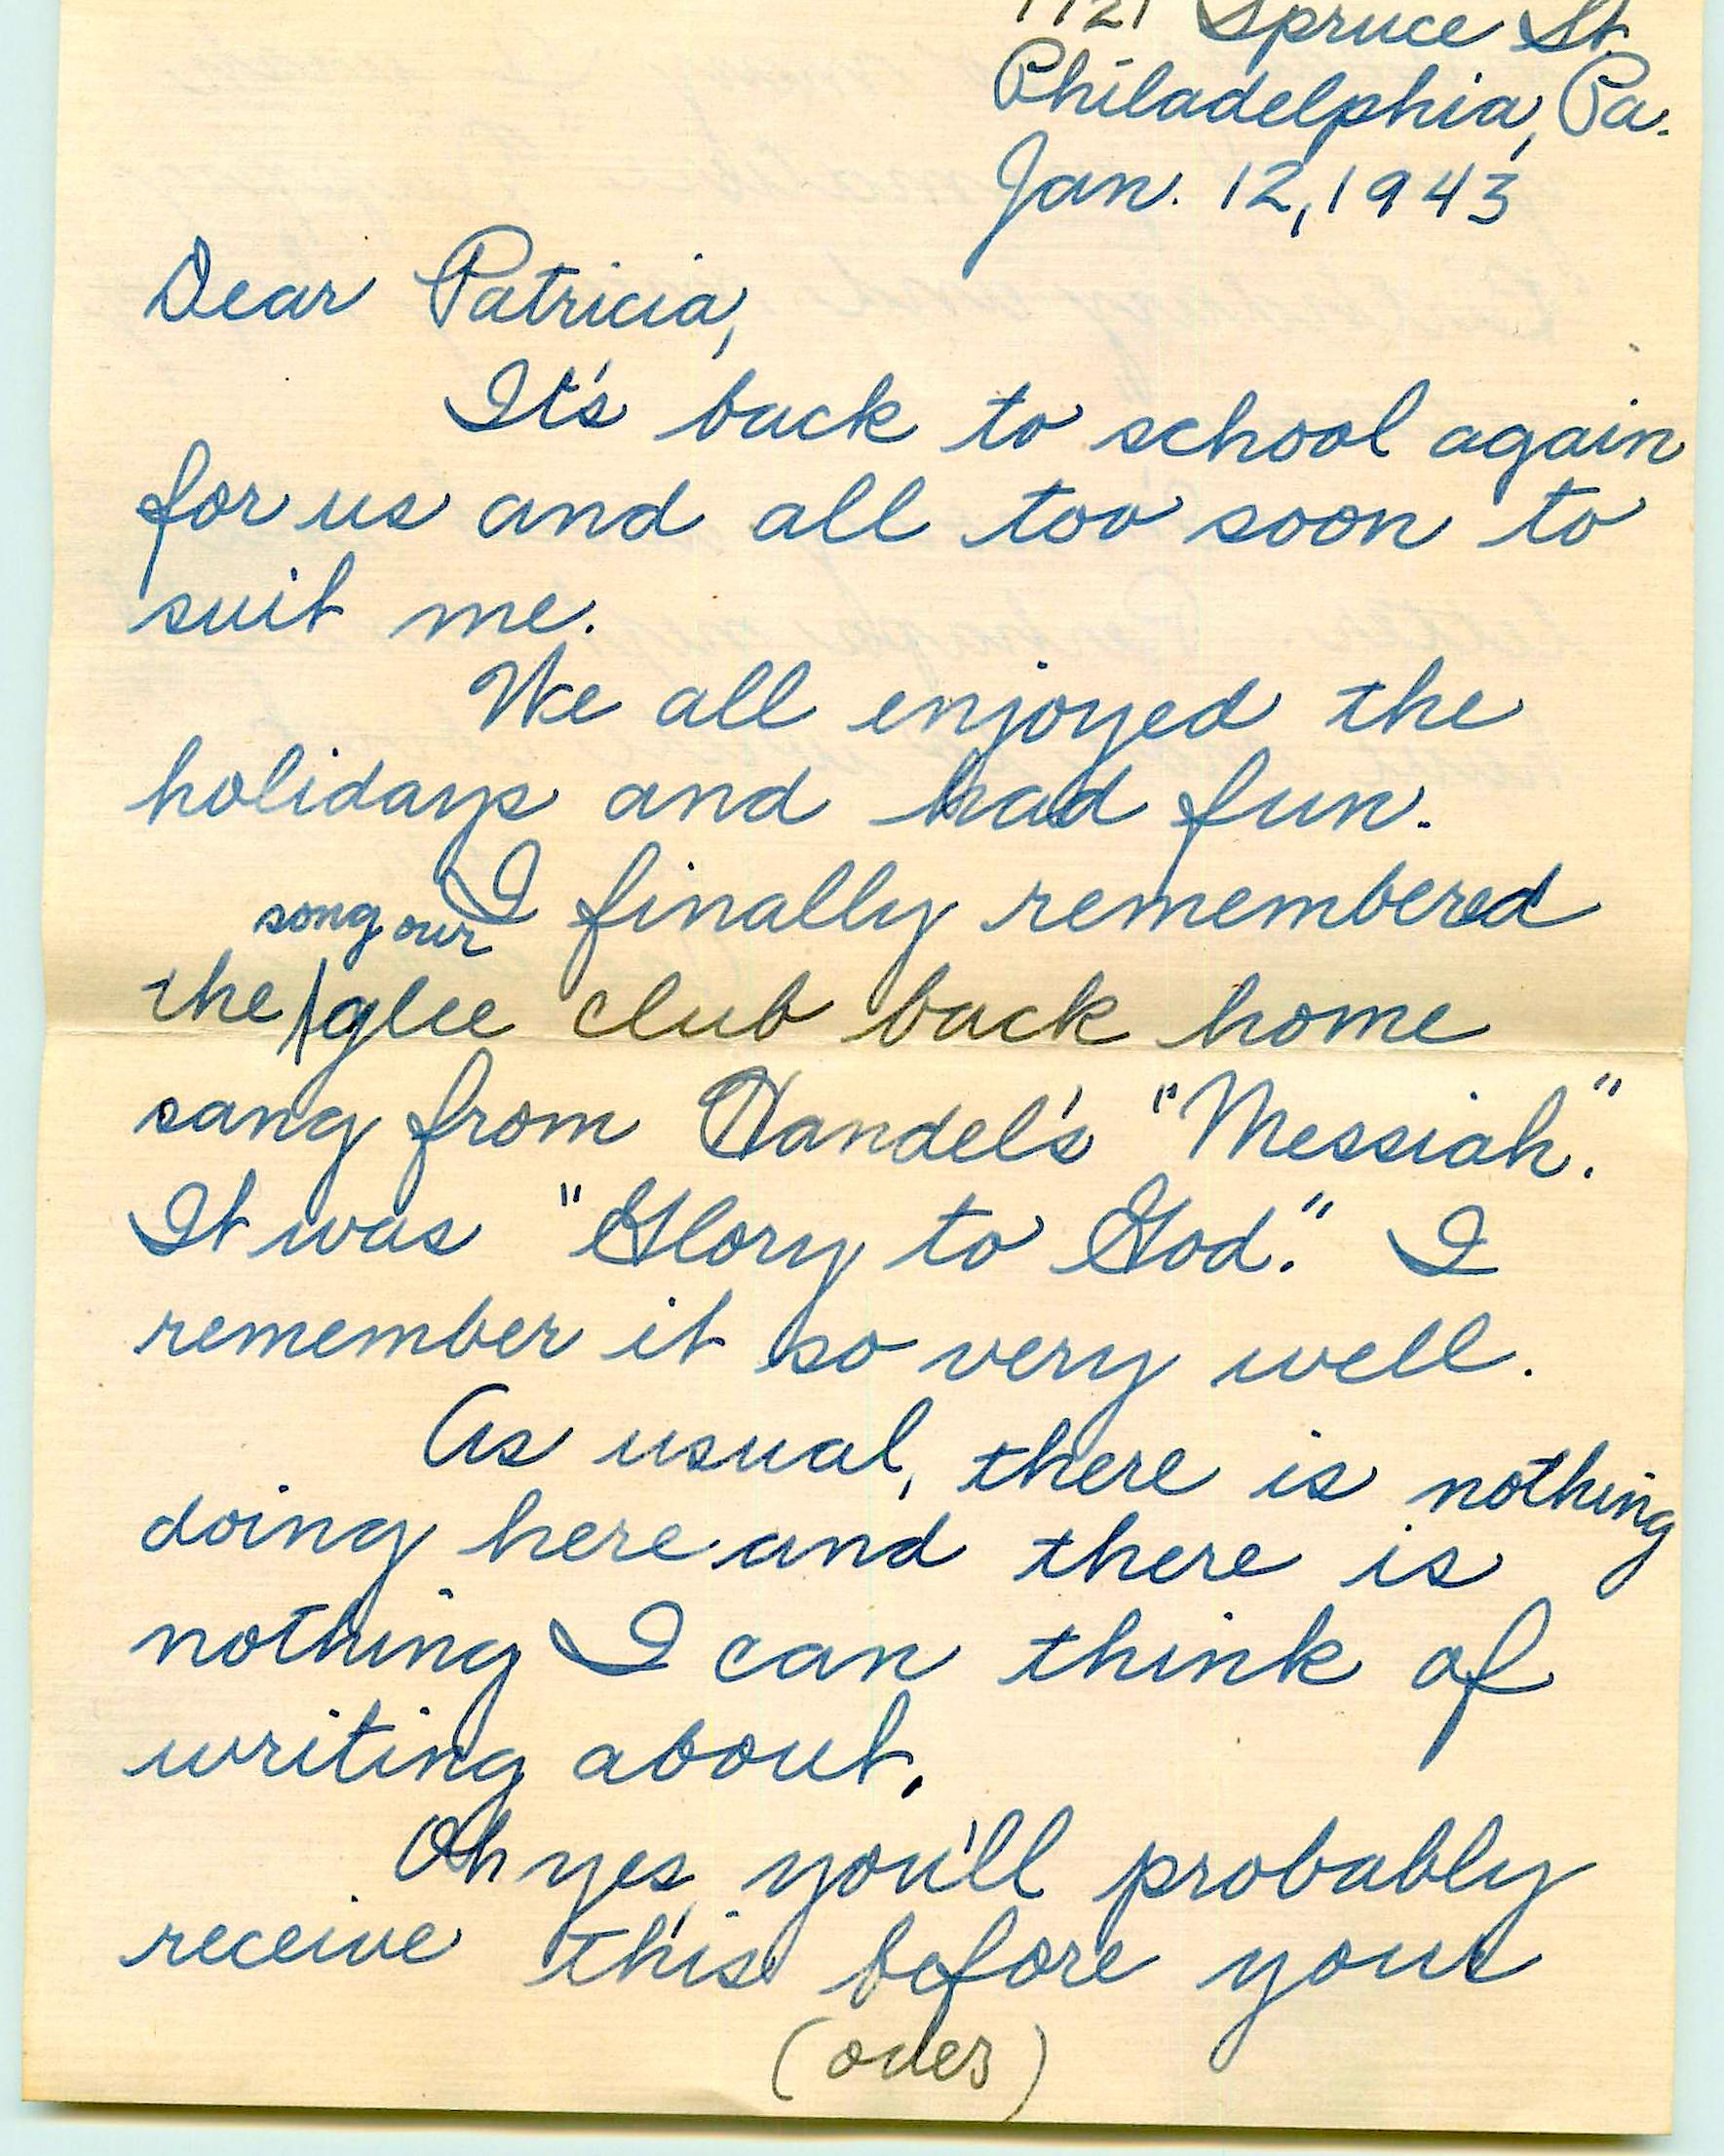 Spruce St.
Philadelphia, Pa.
Jan. 12, 1943
Dear Patricia,
It's back to school again
for us and all too soon to
suit me.
We all enjoyed the
holidays and had fun.
I finally remembered
song our
the glee club back home
sang from Handel's "Messiah."
It was "Glory to God." I
remember it so very well.
As usual, there is nothing
doing here and there is
nothing I can think of
writing about.
Oh yes, you'll probably
receive this before your
(over)